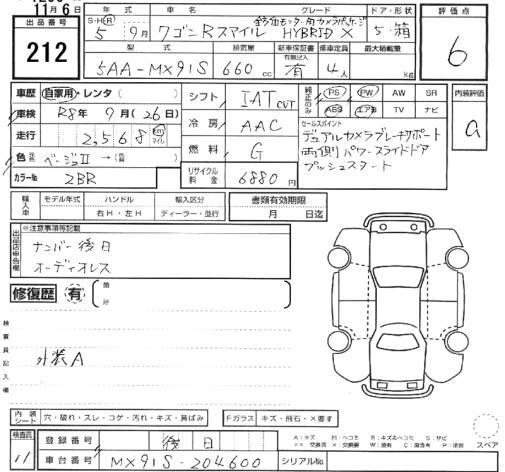 11月6日
出品番号
212
年式 車名 グレード ドア・形状
S・H・R 5年 9月 ワゴンRスマイル HYBRID X 5・箱
型式 排気量 新車保証書 乗車定員 最大積載量
有無記入
5AA-MX91S 660cc 有 4人 kg
評価点
6
車歴 自家用・レンタ ( )
車検 R8年 9月 (26日)
走行 2,568 km マイル
色 ベージュⅡ → (  )
カラーNo 2BR
シフト IAT CVT
冷房 AAC
燃料 G
リサイクル料金 6880円
純正のみ PS PW AW SR
ABS エアB TV ナビ
セールスポイント
デュアルカメラブレーキサポート
両側パワースライドドア
プッシュスタート
内装評価
a
輸入車 モデル年式 ハンドル 輸入区分
右H・左H ディーラー・並行
書類有効期限
月 日迄
※注意事項等記載
出品店申告欄
ナンバー後日
オーディオレス
修復歴 有
箇所
検査員記入欄
外装A
内装シート 穴・破れ・スレ・コゲ・汚れ・キズ・黄ばみ
Fガラス キズ・飛石・×要す
検査員
11
登録番号 後日
車台番号 MX91S-204600
シリアルNo.
A:キズ M:ヘコミ B:キズ&ヘコミ S:サビ
××:交換済 ×:交換要 W:補修 C:腐食 P:塗装
スペア